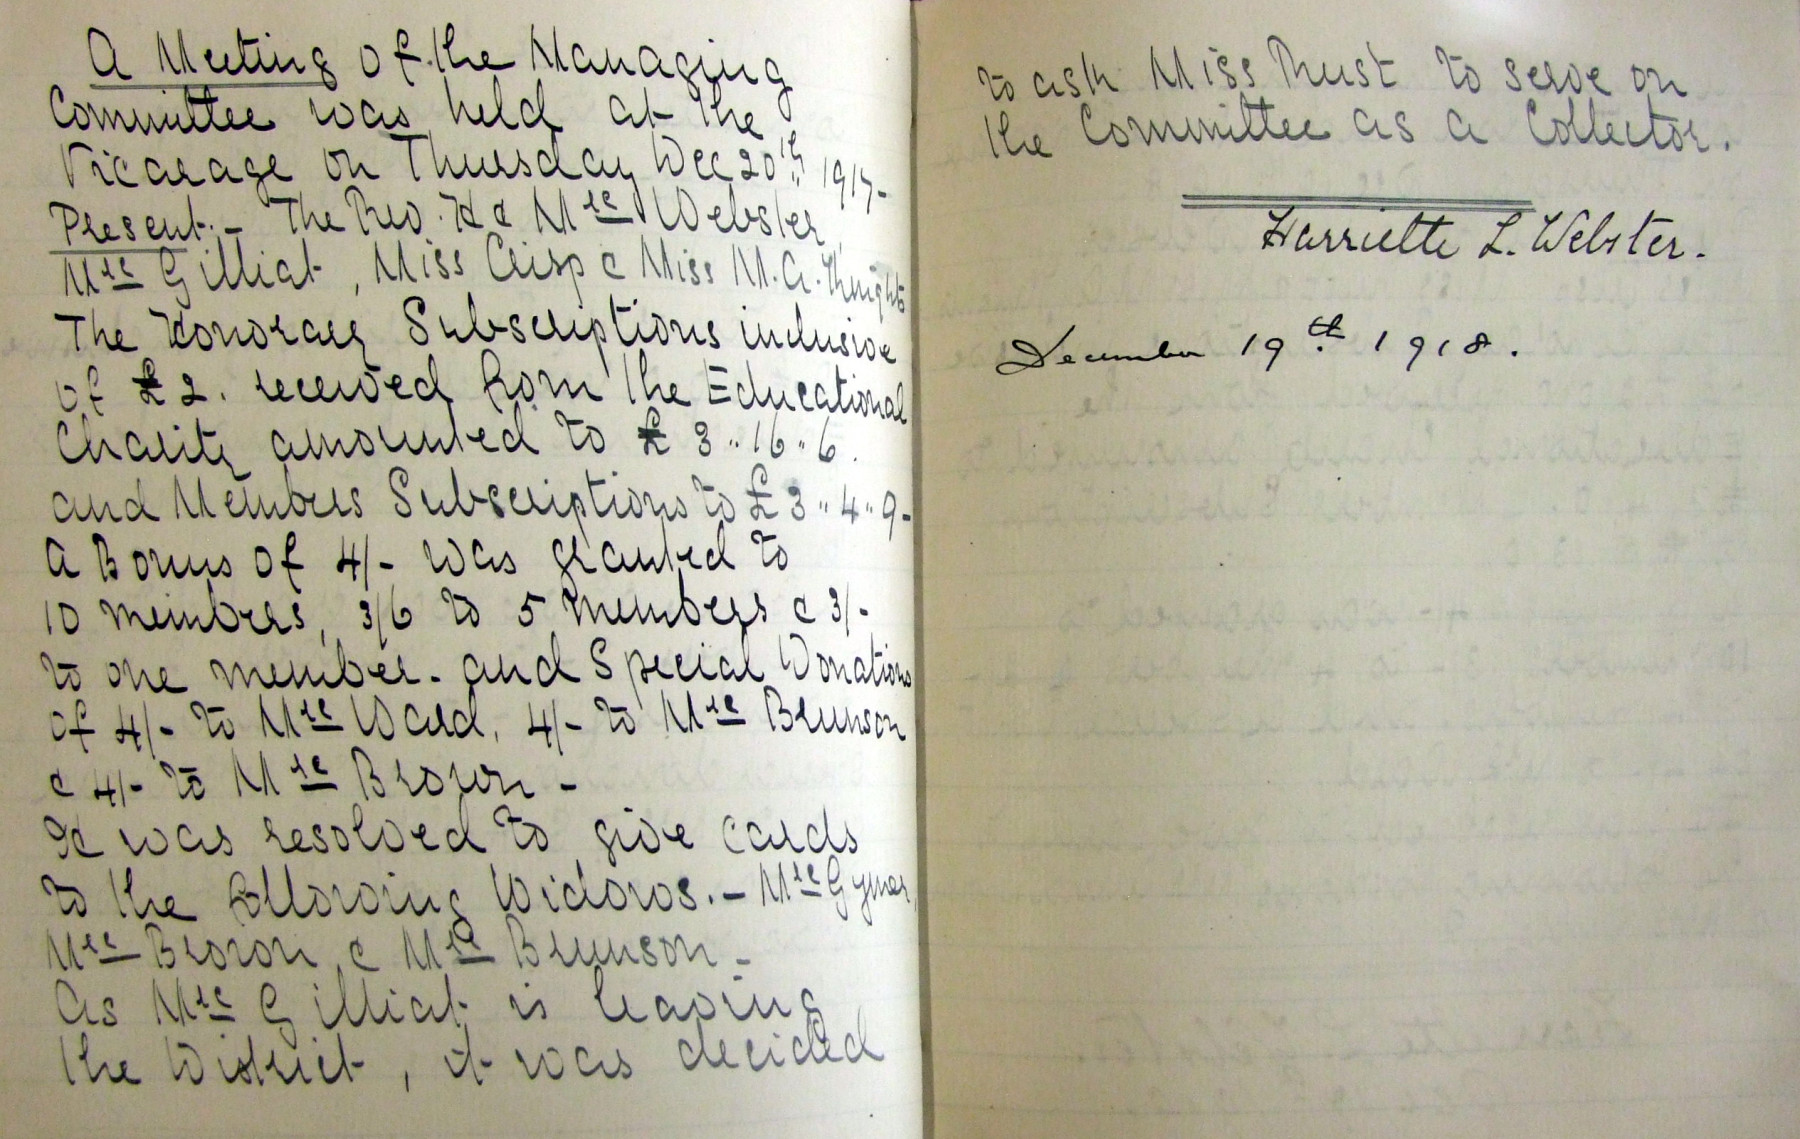 A Meeting of the Managing
Committee was held at the
Vicarage on Thursday Dec 20th 1917-
Present:- The Rev. H & Mrs Webster,
Mrs Gilliat, Miss Crisp & Miss M.A.
The Honorary Subscriptions inclusive
of £2. received from the Educational
Charity amounted to £3"16"6.
and Members Subscriptions to £3"4"9-
A Bonus of 4/- was granted to
10 members, 3/6 to 5 members & 3/-
to one member- and Special Donations
of 4/- to Mrs Ward, 4/- to Mrs Brunson
& 4/- to Mrs Brown-
It was resolved to give cards
to the following Widows.- Mrs Gymer,
Mrs Brown & Mrs Brunson-
As Mrs Gilliat is leaving
the District, it was decided
to ask Miss Thust to serve on
the Committee as a Collector.
Harriette L. Webster.
December 19th 1918.